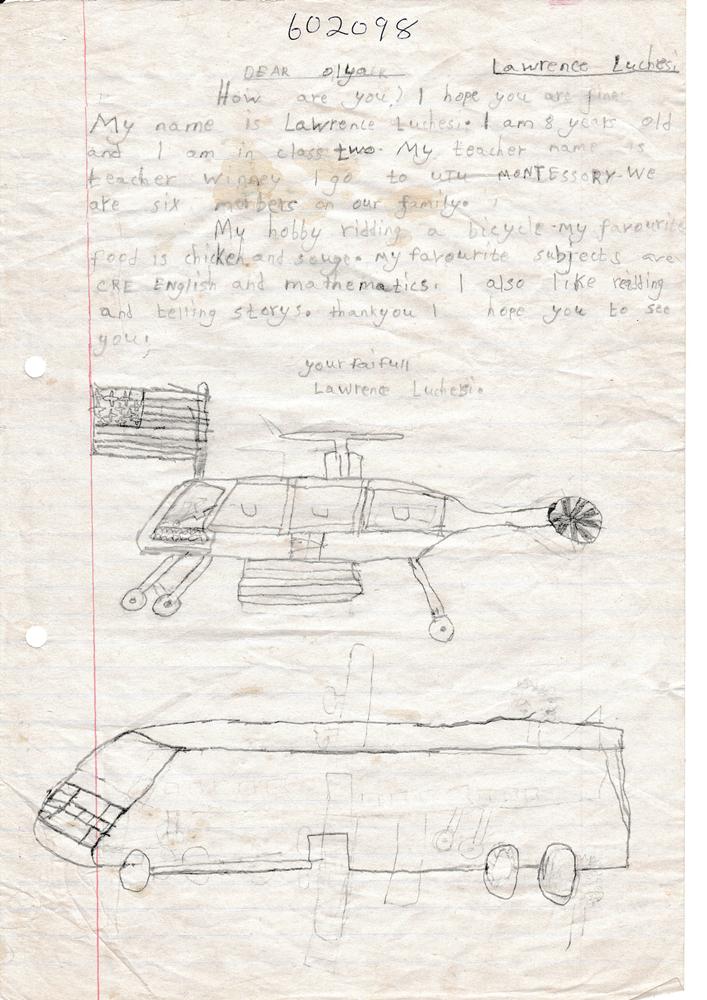 602098
DEAR olyack Lawrence Luchesi
How are you? I hope you are fine.
My name is Lawrence Luchesi. I am 8 years old
and I am in class two. My teacher name is
teacher winney I go to UTU MONTESSORY-We
are six morbers on our family.
My hobby ridding a bicycle.my favourite
food is chicken and souge. my favourite subjects are
CRE English and mathematics. I also like reiding
and telling storys. thankyou I hope you to see
you!
your faifull
Lawrence Luchesi.